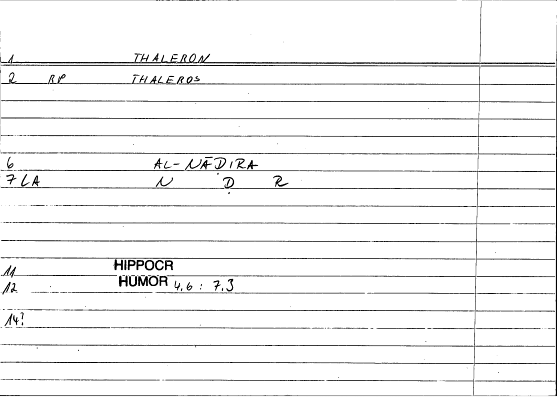 1 THALERON
2 RP THALEROS
6 AL-NĀḌIRA
7 LA N Ḍ R
11 HIPPOCR
12 HUMOR 4,6 : 7,3
14?